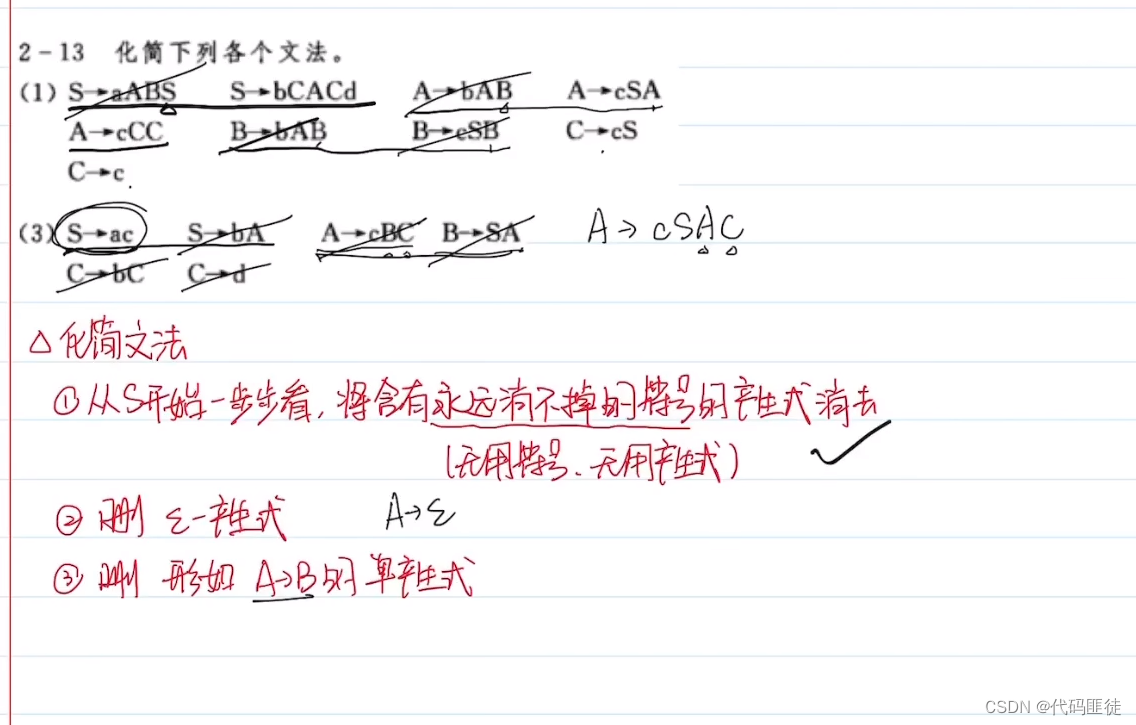 2-13 化简下列各个文法。
(1) S→aABS S→bCACd A→bAB A→cSA
A→cCC B→bAB B→cSB C→cS
C→c
(3) S→ac S→bA A→cBC B→SA A→cSAC
C→bC C→d
△化简文法
①从S开始一步步看,将含有永远消不掉的符号的产生式消去
(无用符号、无用产生式) ✓
②删 ε-产生式 A→ε
③删 形如 A→B的单产生式
CSDN @代码匪徒